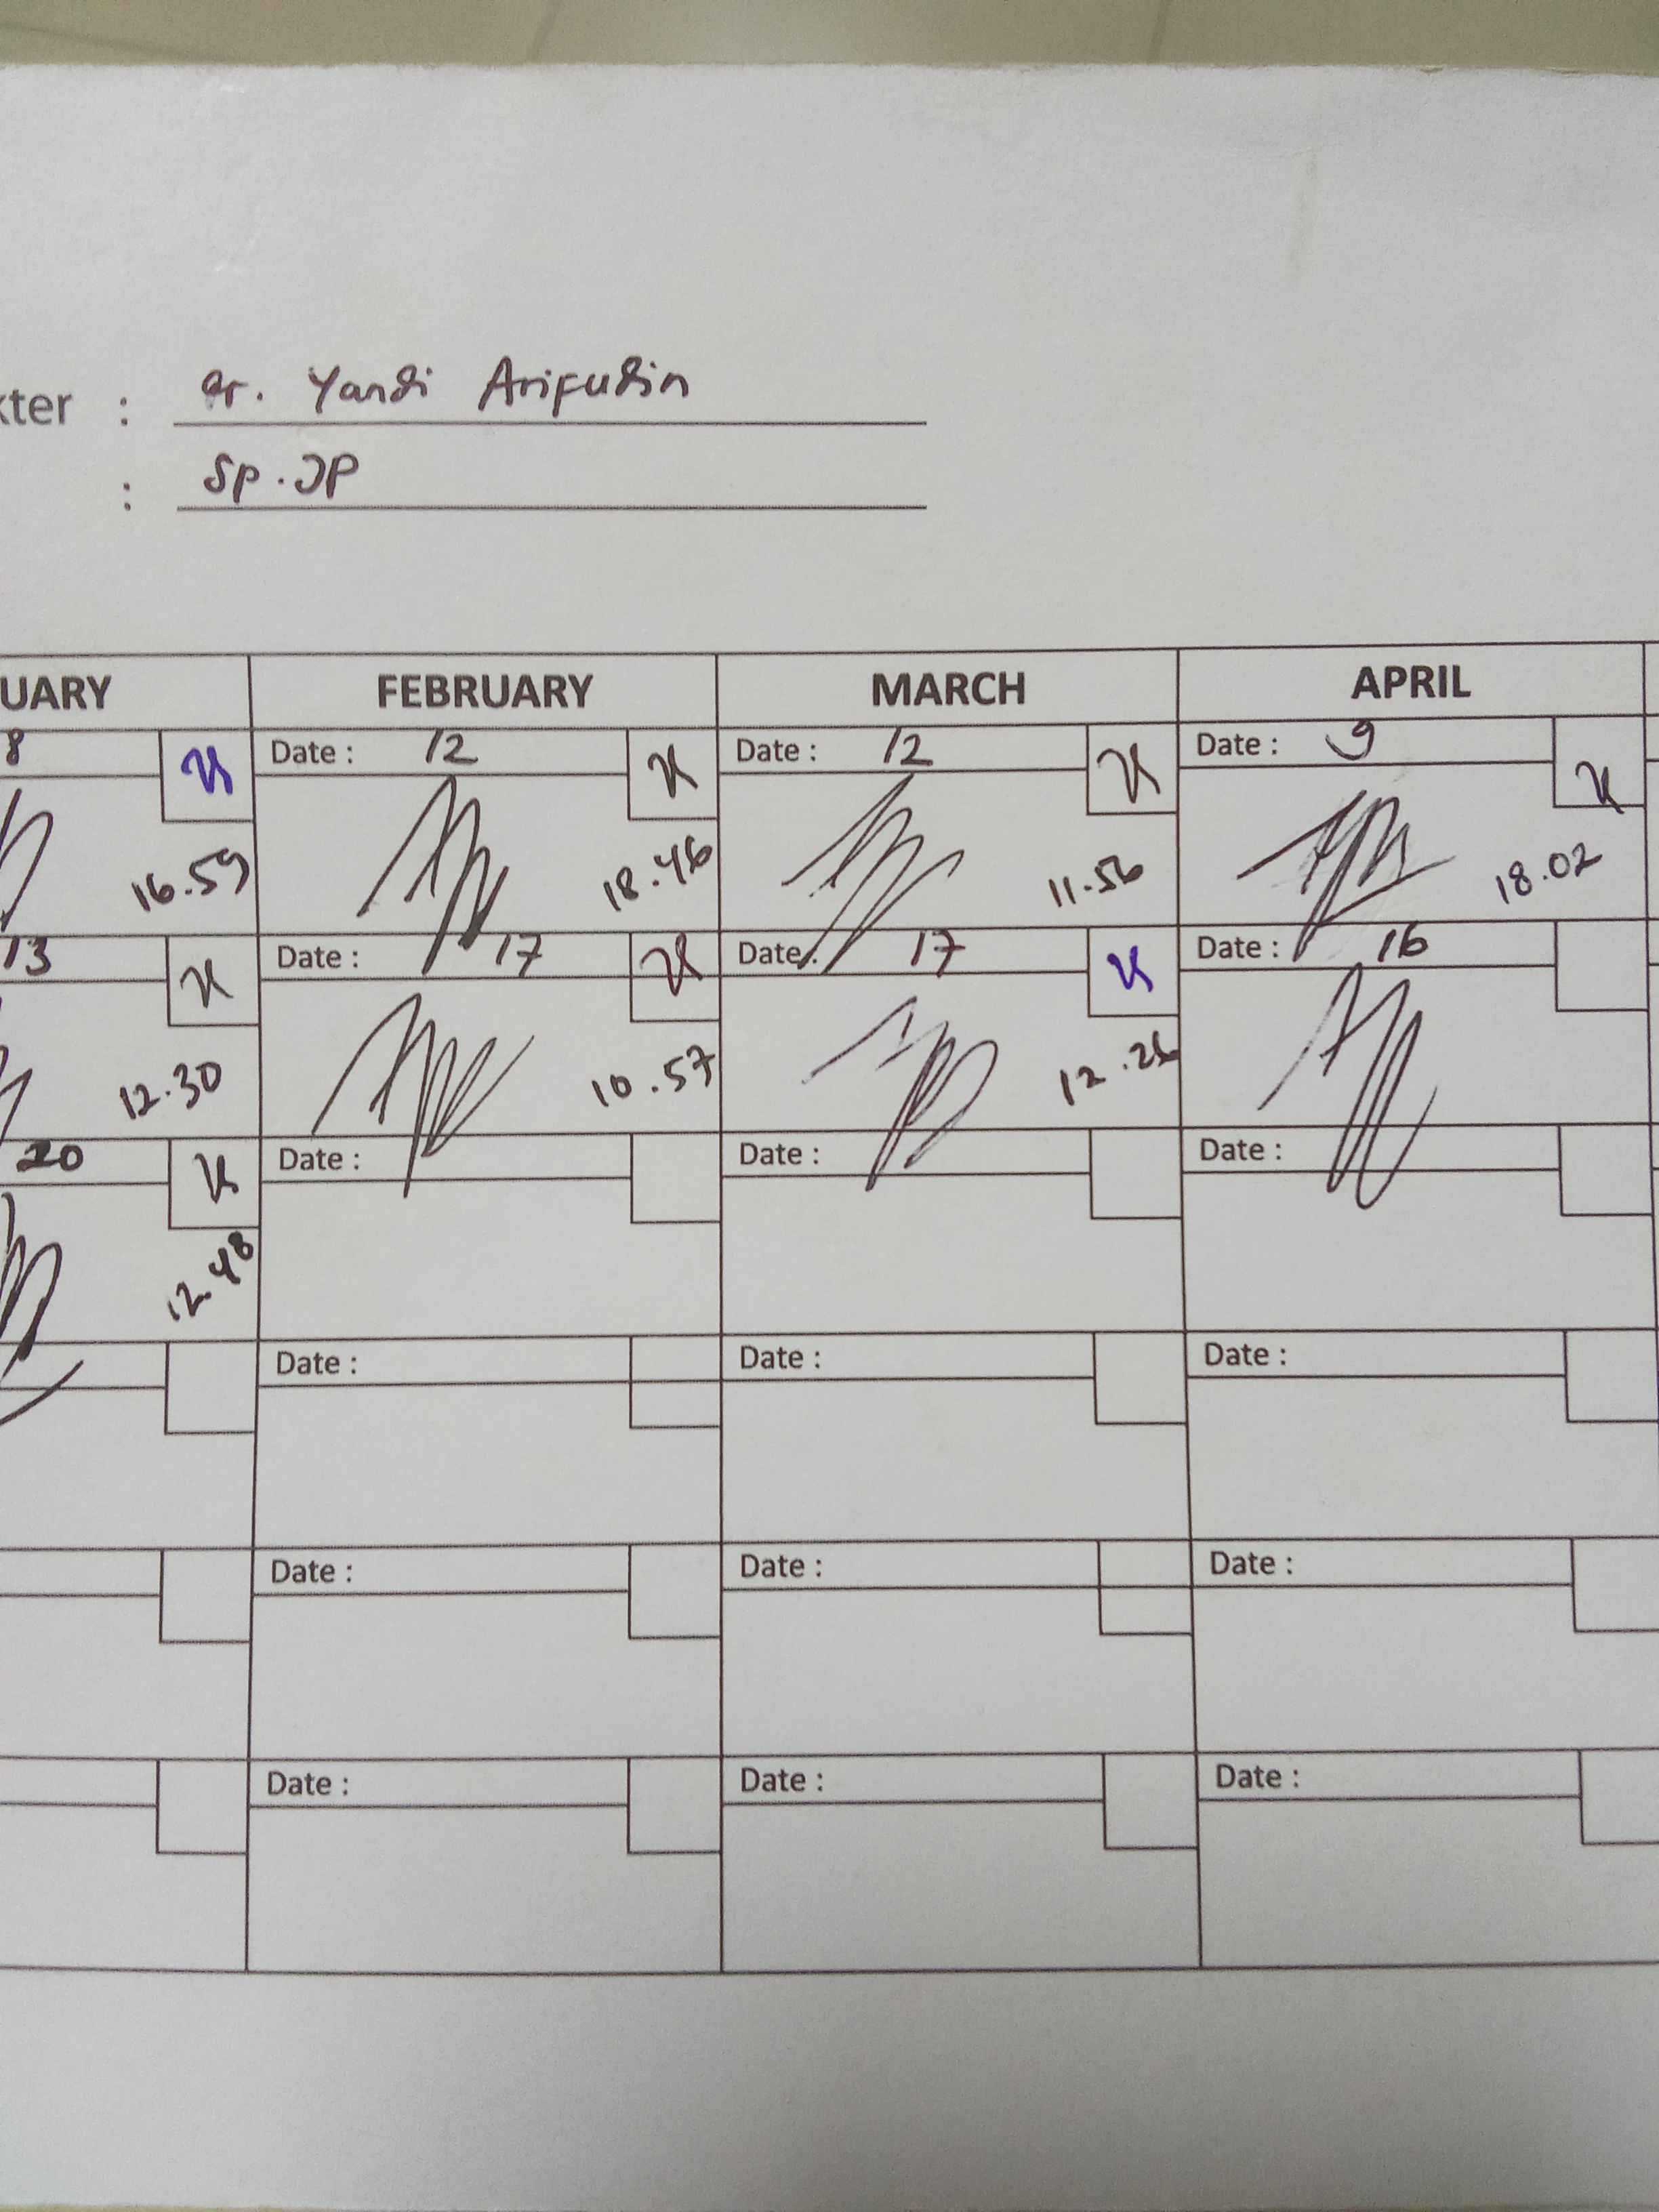 kter : dr. Yandi Arifudin
: Sp.JP
UARY FEBRUARY MARCH APRIL
8 Date : 12 Date : 12 Date : 9
16.59 18.46 11.56 18.02
13 Date : 17 Date : 17 Date : 16
12.30 10.57 12.26
20 Date : Date : Date :
12.48
Date : Date : Date :
Date : Date : Date :
Date : Date : Date :